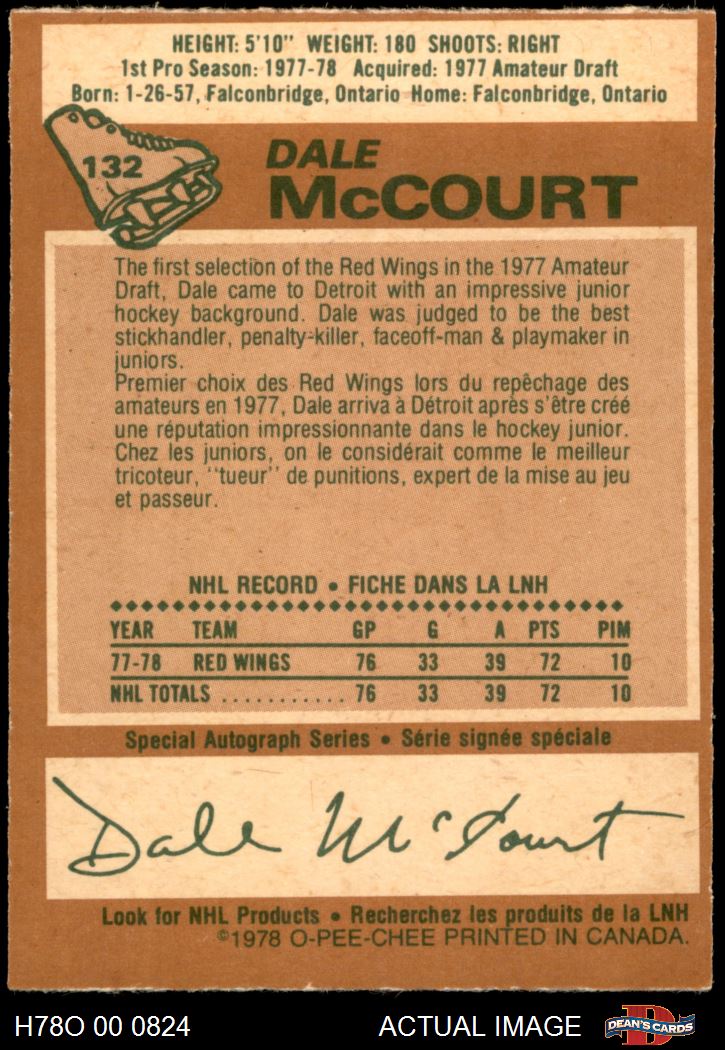 HEIGHT: 5'10" WEIGHT: 180 SHOOTS: RIGHT
1st Pro Season: 1977-78 Acquired: 1977 Amateur Draft
Born: 1-26-57, Falconbridge, Ontario Home: Falconbridge, Ontario
132
DALE
McCOURT
The first selection of the Red Wings in the 1977 Amateur
Draft, Dale came to Detroit with an impressive junior
hockey background. Dale was judged to be the best
stickhandler, penalty-killer, faceoff-man & playmaker in
juniors.
Premier choix des Red Wings lors du repêchage des
amateurs en 1977, Dale arriva à Détroit après s'être créé
une réputation impressionnante dans le hockey junior.
Chez les juniors, on le considérait comme le meilleur
tricoteur, ''tueur'' de punitions, expert de la mise au jeu
et passeur.
NHL RECORD • FICHE DANS LA LNH
YEAR TEAM GP G A PTS PIM
77-78 RED WINGS 76 33 39 72 10
NHL TOTALS ........... 76 33 39 72 10
Special Autograph Series • Série signée spéciale
Dale McCourt
Look for NHL Products • Recherchez les produits de la LNH
©1978 O-PEE-CHEE PRINTED IN CANADA.
H78O 00 0824 ACTUAL IMAGE D DEAN'S CARDS